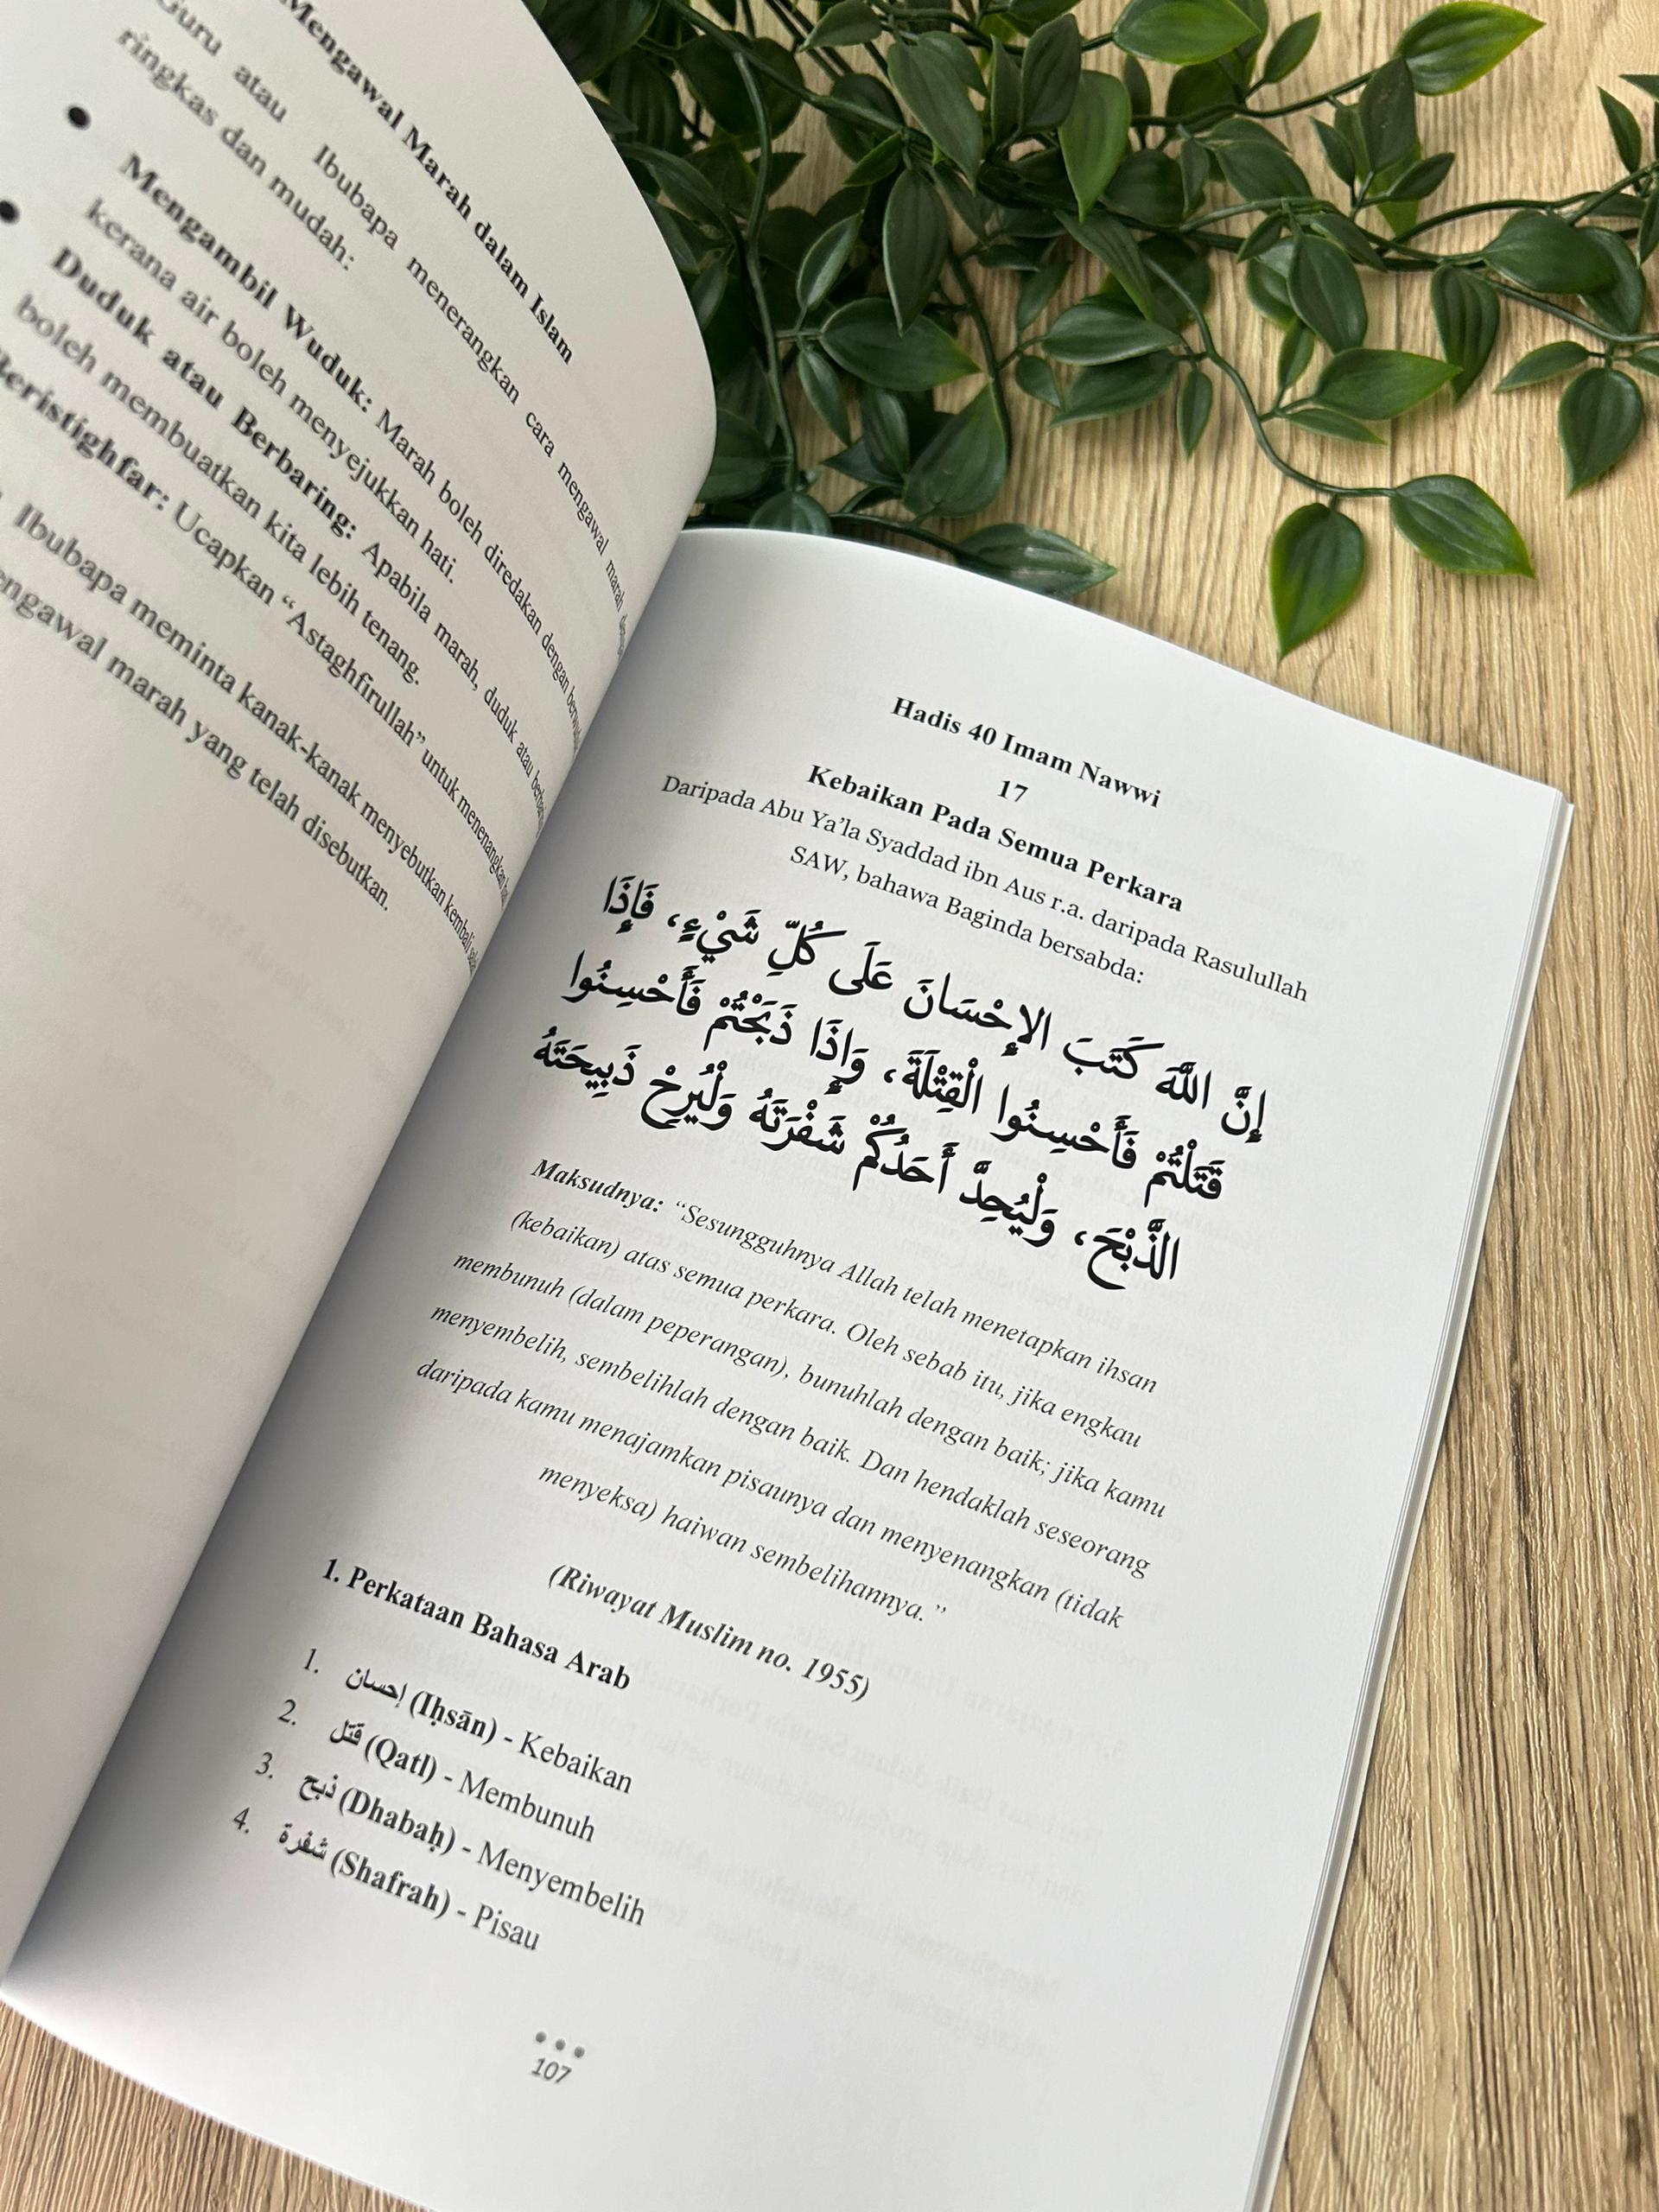 Mengawal Marah dalam Islam
Guru atau Ibubapa menerangkan cara mengawal marah
ringkas dan mudah:
• Mengambil Wuduk: Marah boleh diredakan dengan
kerana air boleh menyejukkan hati.
• Duduk atau Berbaring: Apabila marah, duduk atau
boleh membuatkan kita lebih tenang.
Beristighfar: Ucapkan “Astaghfirullah” untuk menenangkan
Ibubapa meminta kanak-kanak menyebutkan kembali
mengawal marah yang telah disebutkan.
Hadis 40 Imam Nawwi
17
Kebaikan Pada Semua Perkara
Daripada Abu Ya’la Syaddad ibn Aus r.a. daripada Rasulullah
SAW, bahawa Baginda bersabda:
إِنَّ اللَّهَ كَتَبَ الإِحْسَانَ عَلَى كُلِّ شَيْءٍ، فَإِذَا
قَتَلْتُمْ فَأَحْسِنُوا الْقِتْلَةَ، وَإِذَا ذَبَحْتُمْ فَأَحْسِنُوا
الذَّبْحَ، وَلْيُحِدَّ أَحَدُكُمْ شَفْرَتَهُ وَلْيُرِحْ ذَبِيحَتَهُ
Maksudnya: “Sesungguhnya Allah telah menetapkan ihsan
(kebaikan) atas semua perkara. Oleh sebab itu, jika engkau
membunuh (dalam peperangan), bunuhlah dengan baik; jika kamu
menyembelih, sembelihlah dengan baik. Dan hendaklah seseorang
daripada kamu menajamkan pisaunya dan menyenangkan (tidak
menyeksa) haiwan sembelihannya.”
(Riwayat Muslim no. 1955)
1. Perkataan Bahasa Arab
1. إحسان (Iḥsān) - Kebaikan
2. قتل (Qatl) - Membunuh
3. ذبح (Dhabaḥ) - Menyembelih
4. شفرة (Shafrah) - Pisau
107